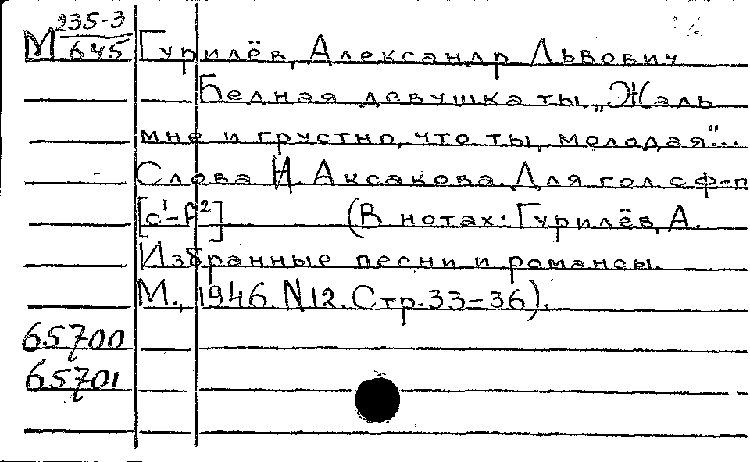 М 235-3
645 Гурилёв, Александр Львович
Бедная девушка ты, „Жаль
мне и грустно, что ты, молодая"...
Слова И. Аксакова. Для гол. с ф-п
[c¹-f²] (В нотах: Гурилёв, А.
Избранные песни и романсы.
М., 1946. N12. Стр. 33-36).
65700
65701